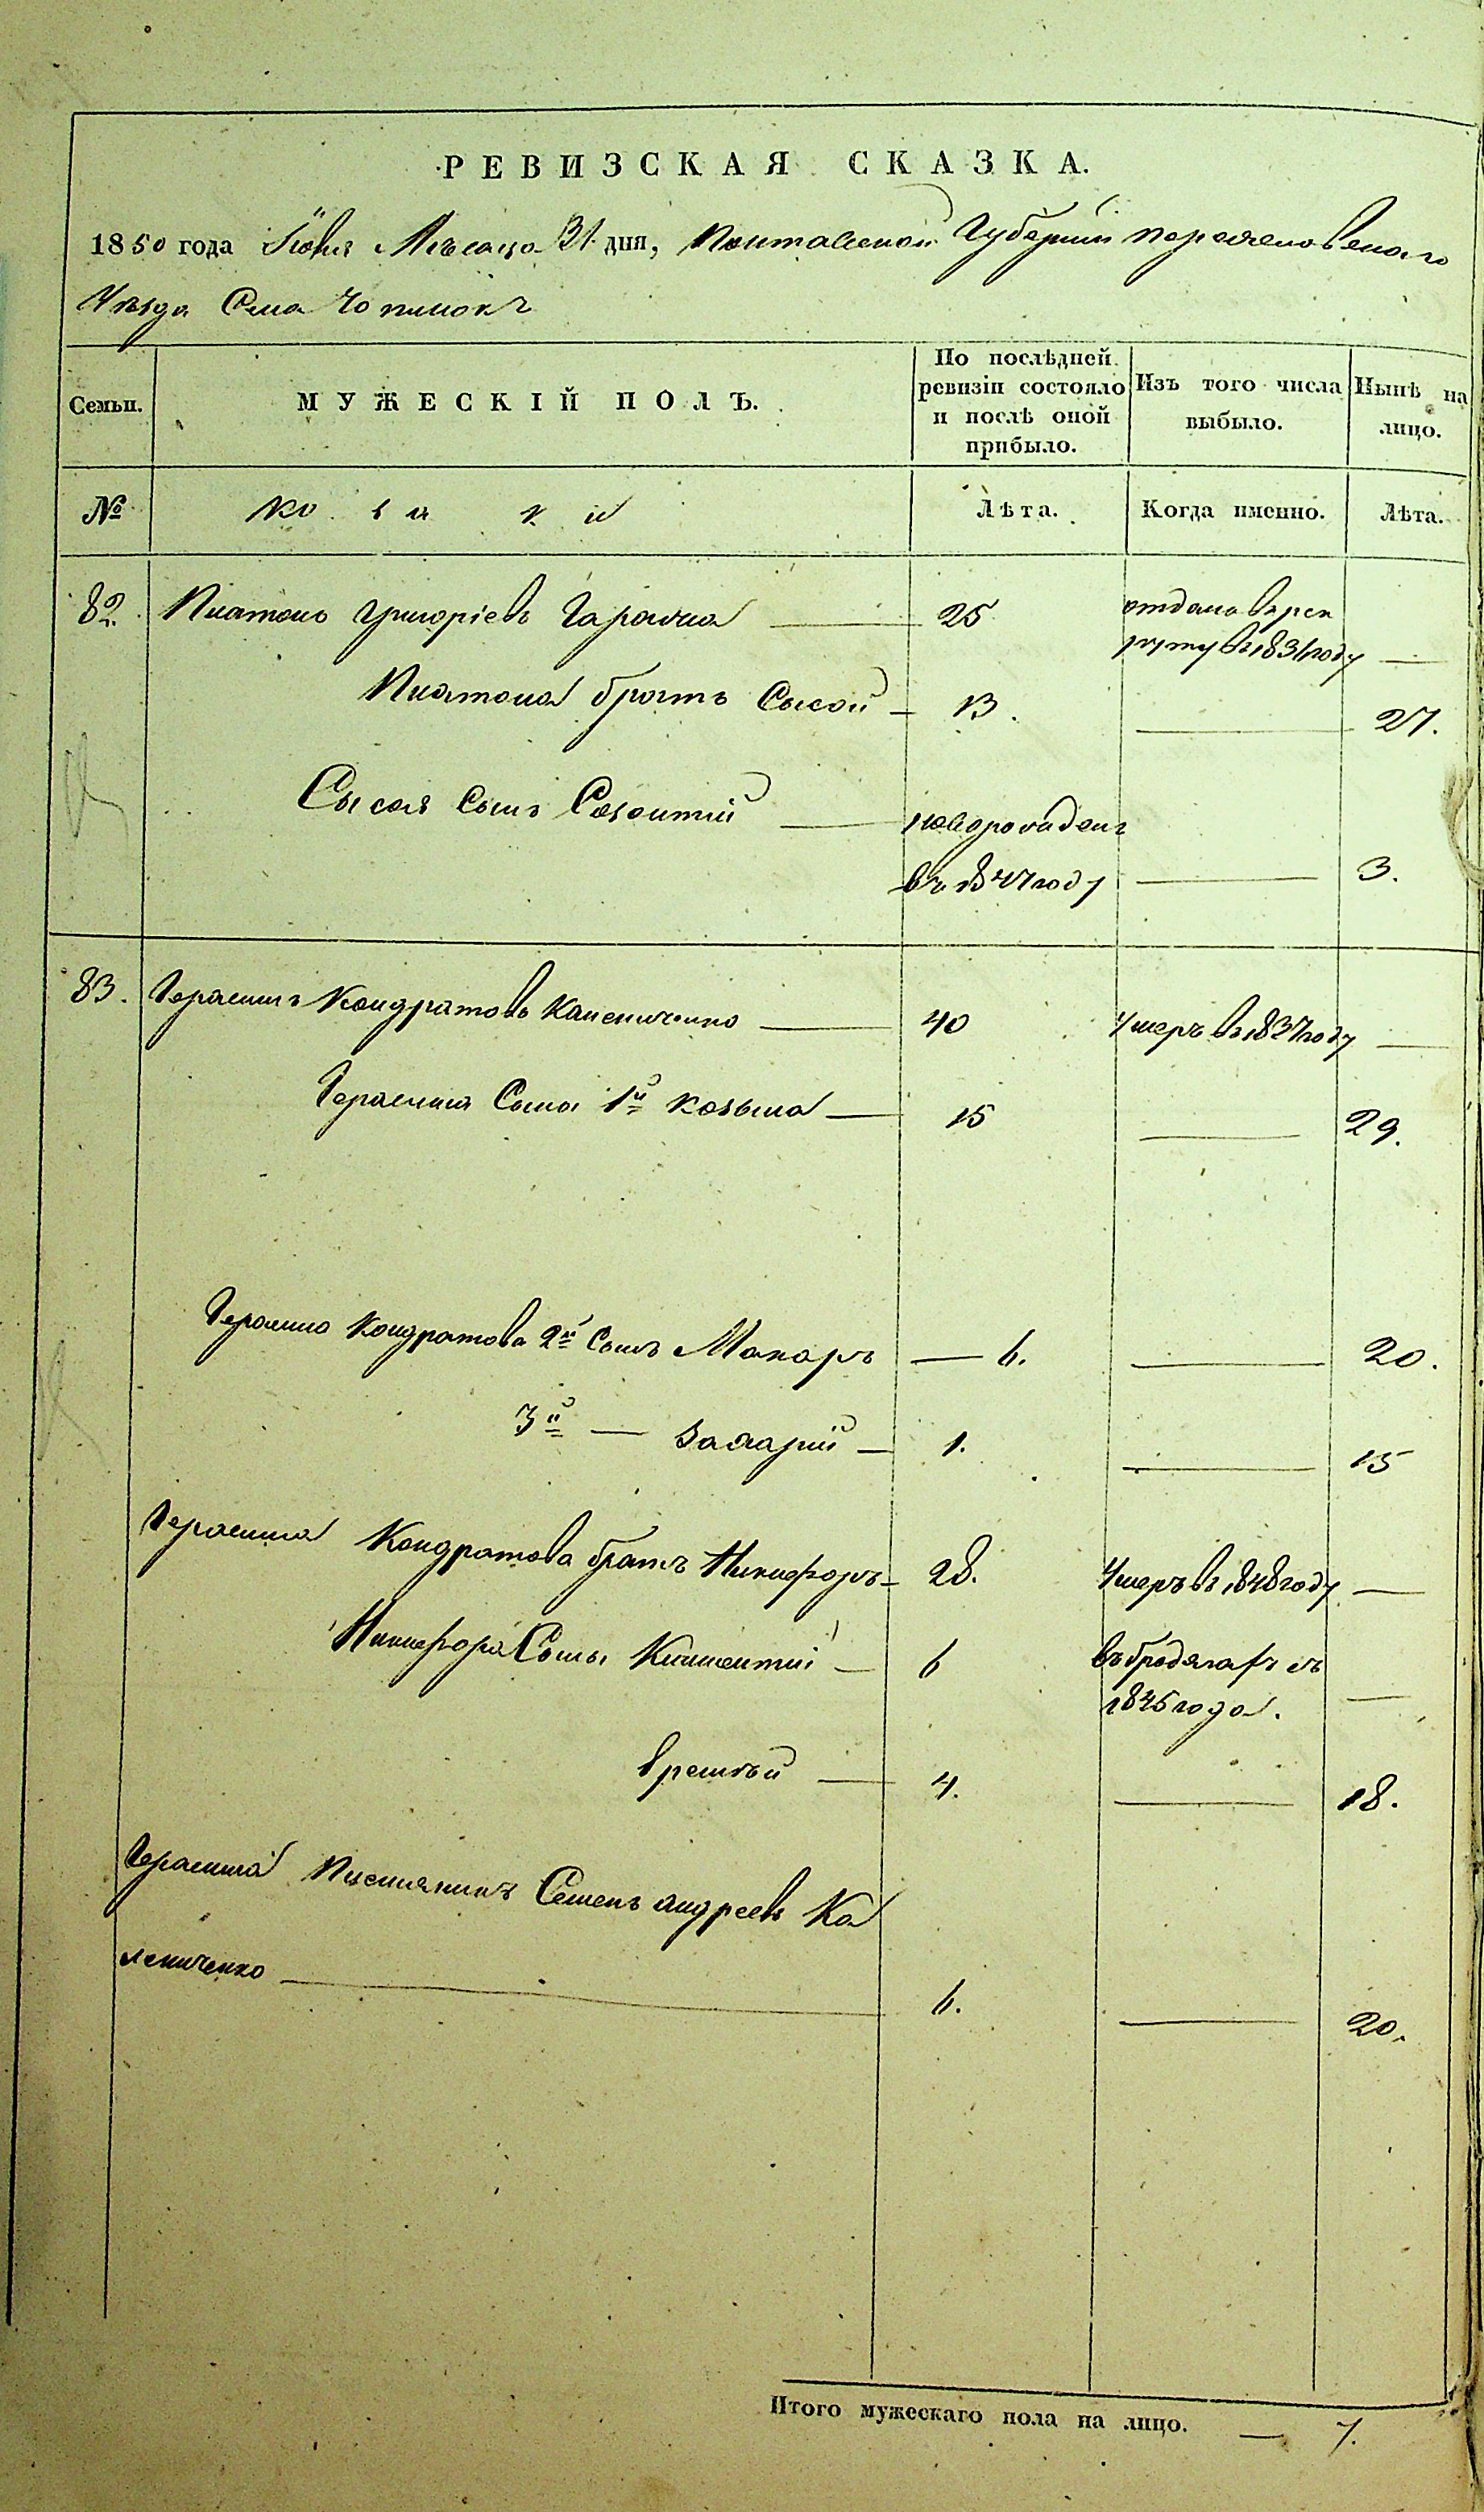 РЕВИЗСКАЯ СКАЗКА.
1850 года Іюля Мѣсяца 31 дня, Полтавской Губерніи Переяславскаго
Уѣзда Села Чопилокъ
Семьи.
МУЖЕСКІЙ ПОЛЪ.
По послѣдней ревизіи состояло и послѣ оной прибыло.
Изъ того числа выбыло.
Нынѣ на лицо.
№
козаки
Лѣта.
Когда именно.
Лѣта.
82. Платонъ Григоріевъ Гаража 25 отданъ въ рек
руты въ 1831 году
Платона братъ Сысой 13. 27.
Сысоя Сынъ Созонтій новорожденъ
въ 1847 году 3.
83. Герасимъ Кондратовъ Калениченко 40 Умеръ въ 1837 году
Герасима Сыны 1й Козьма 15 29.
Герасима Кондратова 2й Сынъ Макаръ 6. 20.
3й Захарій 1. 15
Герасима Кондратова братъ Никифоръ 28. Умеръ въ 1848 году
Никифора Сыны Климентій 6 въ бродягахъ съ
1845 года.
Еремѣй 4. 18.
Герасима Племянникъ Семенъ Андреевъ Ка
лениченко 6. 20.
Итого мужескаго пола на лицо. 7.